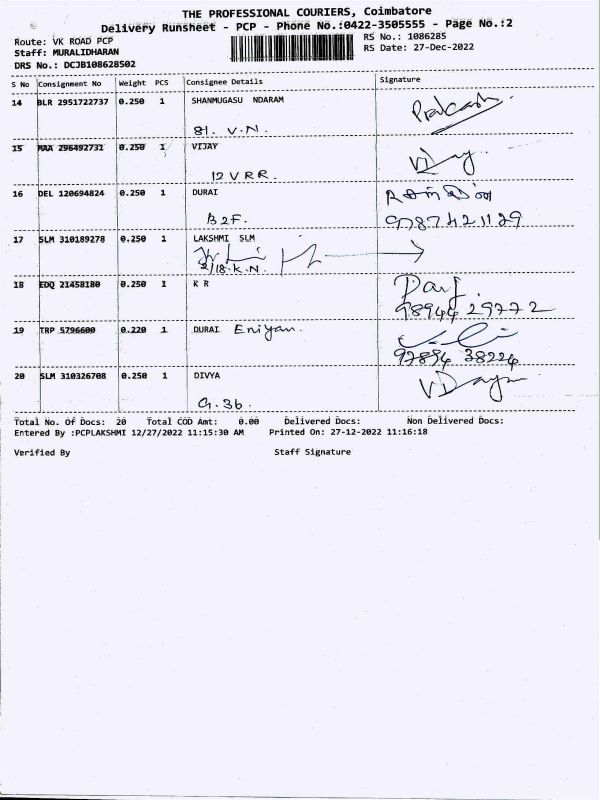 THE PROFESSIONAL COURIERS, Coimbatore
Delivery Runsheet - PCP - Phone No.:0422-3505555 - Page No.:2
Route: VK ROAD PCP
RS No.: 1086285
Staff: MURALIDHARAN
RS Date: 27-Dec-2022
DRS No.: DCJB108628502
S No Consignment No Weight PCS Consignee Details Signature
14 BLR 2951722737 0.250 1 SHANMUGASU NDARAM
Prakash
81. V.N.
15 MAA 296492731 0.250 1 VIJAY
12 V R R.
16 DEL 120694824 0.250 1 DURAI
B 2F.
9787421129
17 SLM 310189278 0.250 1 LAKSHMI SLM
2/18. K.N.
18 EDQ 21458180 0.250 1 K R
98944 29772
19 TRP 5796600 0.220 1 DURAI Eniyan.
97894 38224
20 SLM 310326708 0.250 1 DIVYA
G. 36
Total No. Of Docs: 20 Total COD Amt: 0.00 Delivered Docs: Non Delivered Docs:
Entered By :PCPLAKSHMI 12/27/2022 11:15:30 AM Printed On: 27-12-2022 11:16:18
Verified By Staff Signature